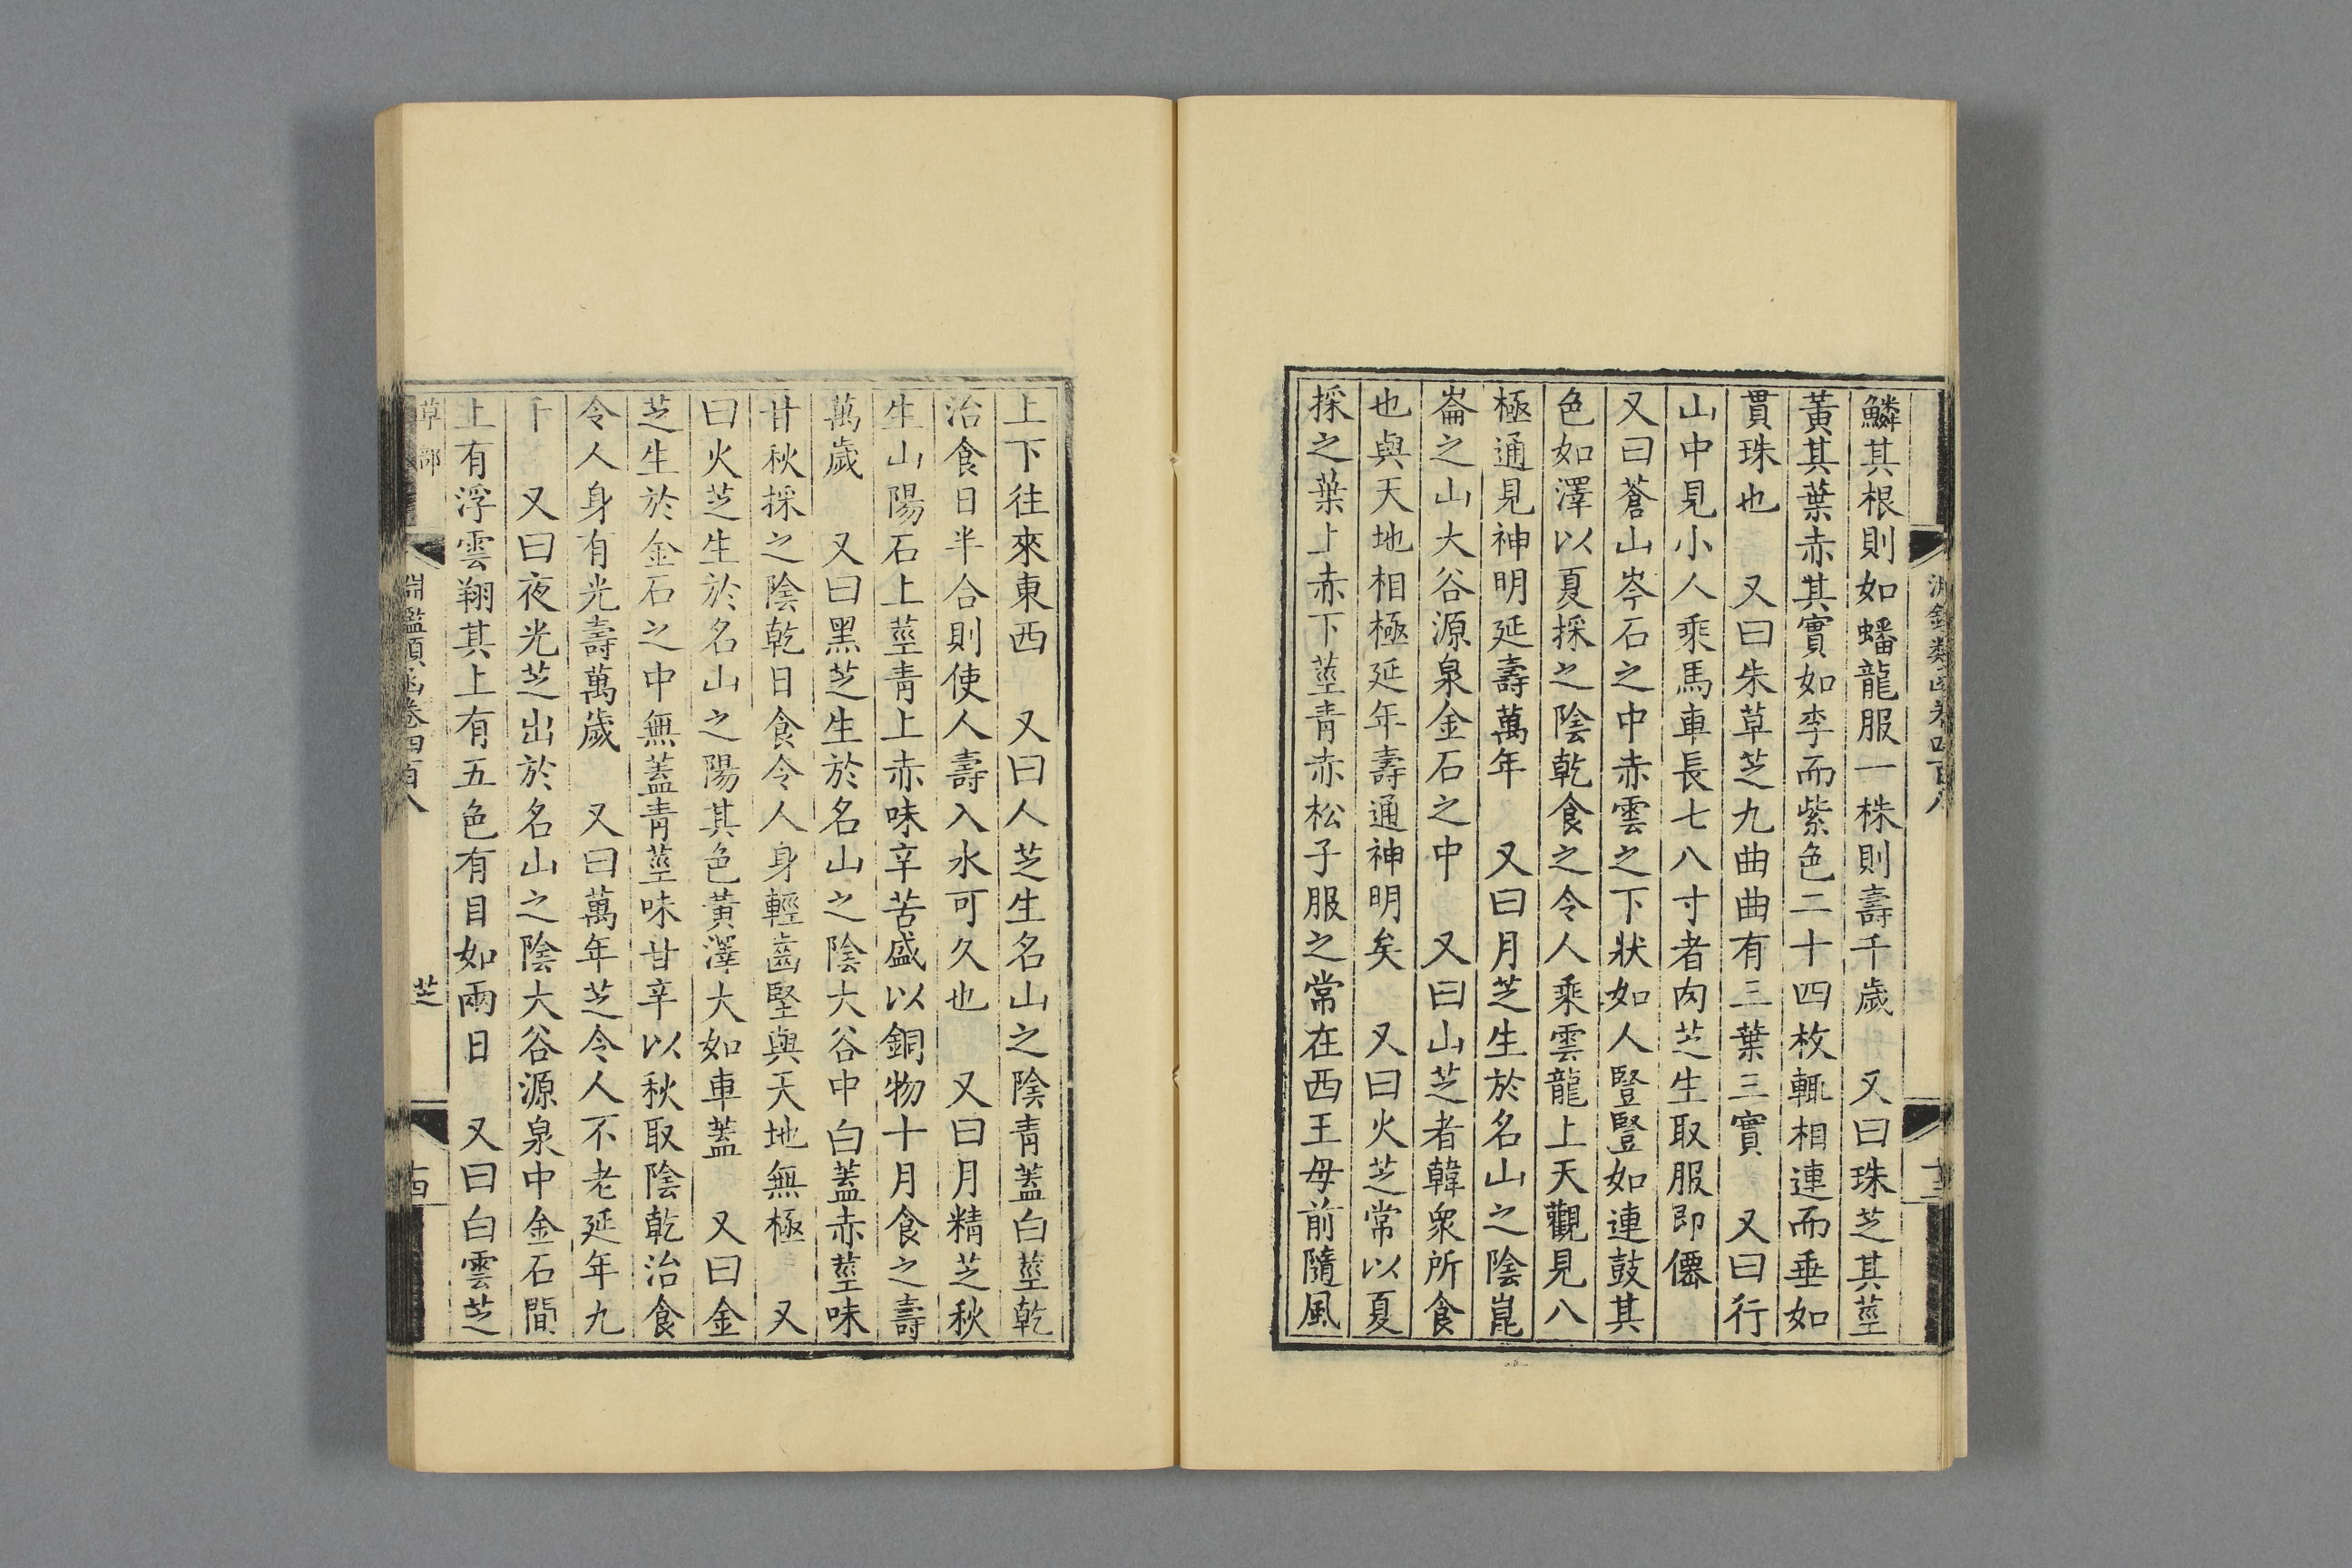 鱗其根則如蟠龍服一株則壽千歲　又曰珠芝其莖
黃其葉赤其實如李而紫色二十四枚輒相連而垂如
貫珠也　又曰朱草芝九曲曲有三葉三實　又曰行
山中見小人乘馬車長七八寸者肉芝生取服即僊
又曰蒼山岑石之中赤雲之下狀如人豎豎如連鼓其
色如澤以夏採之陰乾食之令人乘雲龍上天觀見八
極通見神明延壽萬年　又曰月芝生於名山之陰崑
崙之山大谷源泉金石之中　又曰山芝者韓衆所食
也與天地相極延年壽通神明矣　又曰火芝常以夏
採之葉上赤下莖青赤松子服之常在西王母前隨風
上下往來東西　又曰人芝生名山之陰青蓋白莖乾
治食日半合則使人壽入水可久也　又曰月精芝秋
生山陽石上莖青上赤味辛苦盛以銅物十月食之壽
萬歲　又曰黑芝生於名山之陰大谷中白蓋赤莖味
甘秋採之陰乾日食令人身輕齒堅與天地無極　又
曰火芝生於名山之陽其色黃澤大如車蓋　又曰金
芝生於金石之中無蓋青莖味甘辛以秋取陰乾治食
令人身有光壽萬歲　又曰萬年芝令人不老延年九
千　又曰夜光芝出於名山之陰大谷源泉中金石間
上有浮雲翔其上有五色有目如兩日　又曰白雲芝
草部
淵鑑類函卷四百八
芝